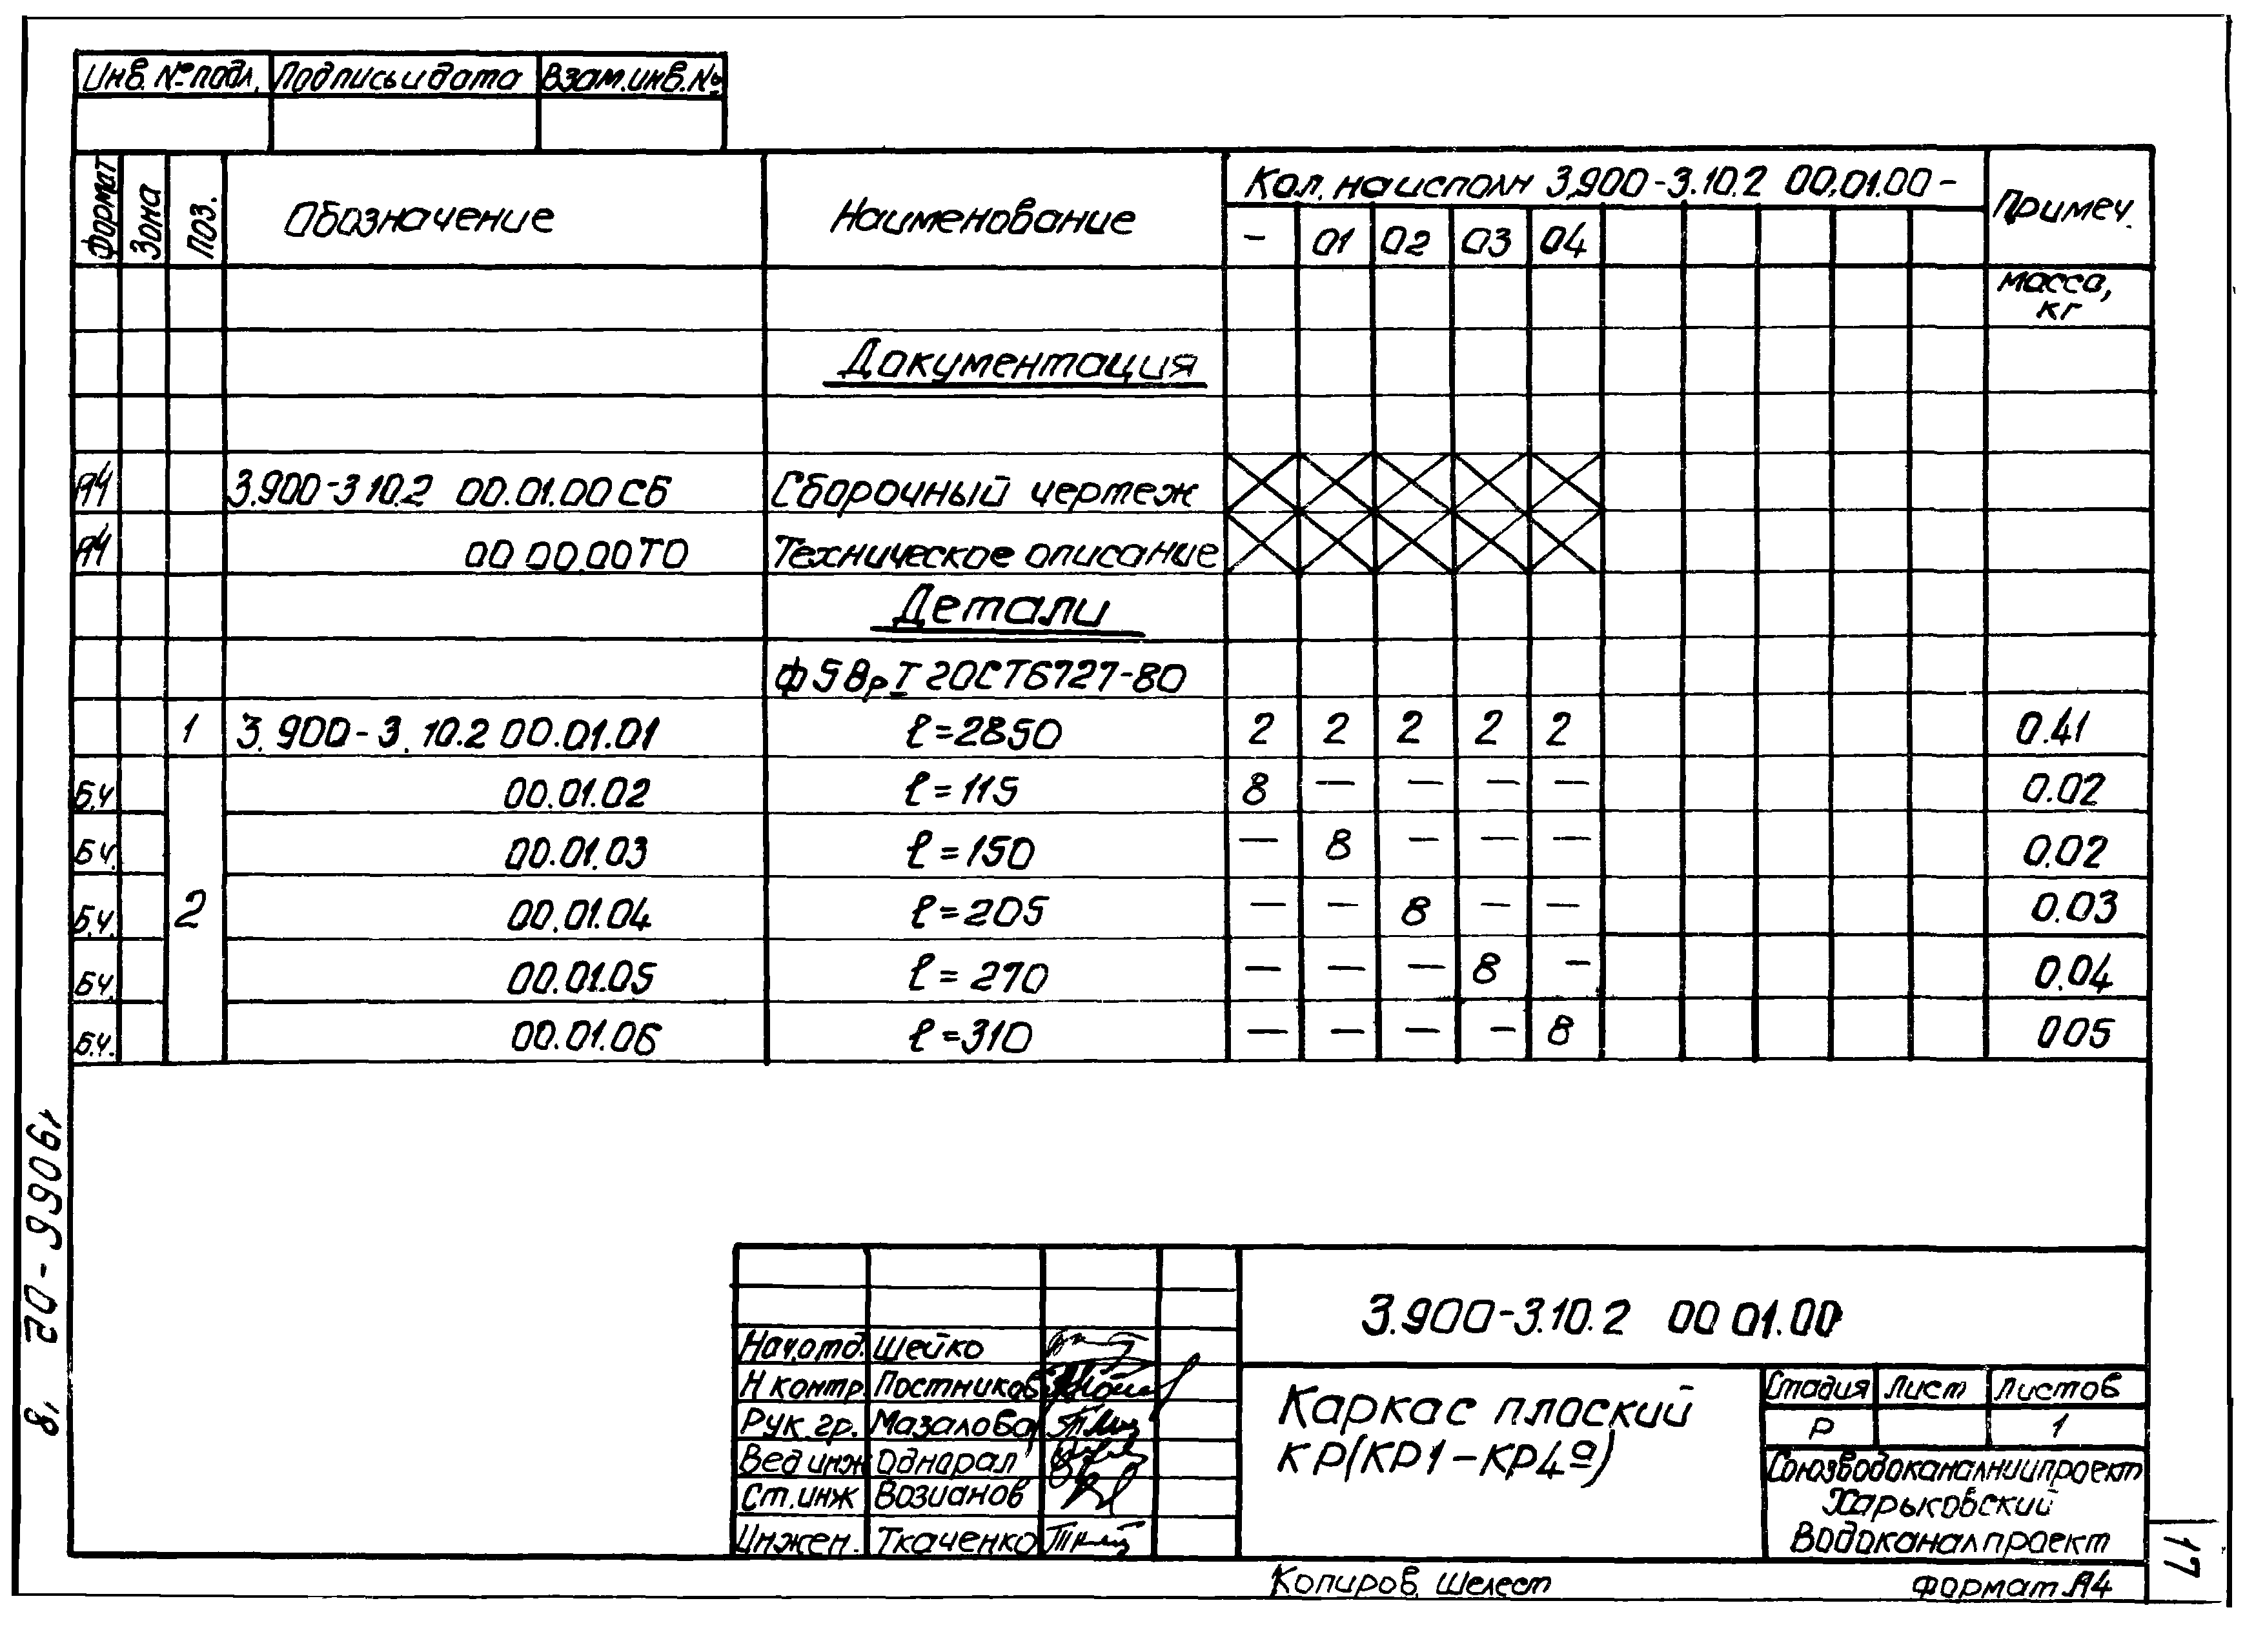 Инв. № подл. Подпись и дата Взам. инв. №
Формат Зона Поз. Обозначение Наименование Кол. на исполн 3.900-3.10.2 00.01.00- Примеч.
- 01 02 03 04
масса, кг
Документация
А4 3.900-3 10.2 00.01.00 СБ Сборочный чертеж
А4 00 00.00 ТО Техническое описание
Детали
Ф 5 Вр I ГОСТ 6727-80
1 3.900-3.10.2 00.01.01 ℓ=2850 2 2 2 2 2 0.41
Б.ч 00.01.02 ℓ=115 8 — — — — 0.02
Б.ч. 00.01.03 ℓ=150 — 8 — — — 0.02
Б.ч. 2 00.01.04 ℓ=205 — — 8 — — 0.03
Б.ч. 00.01.05 ℓ=270 — — — 8 — 0.04
Б.ч. 00.01.06 ℓ=310 — — — — 8 0.05
3.900-3.10.2 00 01.00
Нач.отд. Шейко
Н контр. Постников
Рук. гр. Мазалова
Вед инж Однорал
Ст. инж Возианов
Инжен. Ткаченко
Каркас плоский
КР(КР1-КР4а)
Стадия Лист Листов
Р 1
Союзводоканалниипроект
Харьковский
Водоканалпроект
Копиров. Шелест Формат А4
17